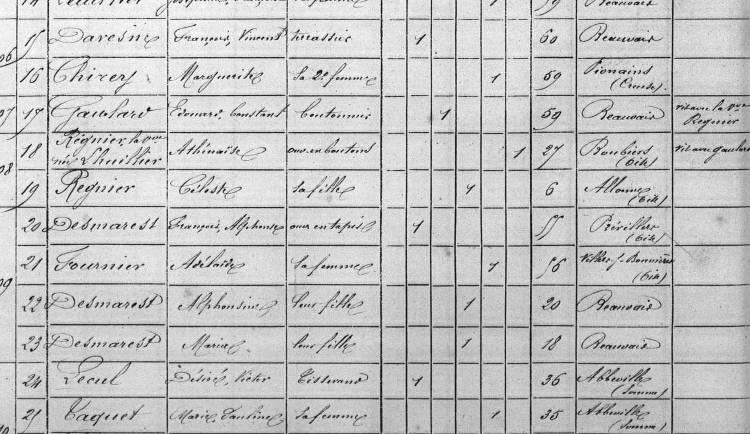 15 Daresne François, Vincent terrassier 1 60 Beauvais
16 Chirez Marguerite sa 2e femme 1 59 Pionains (Creuse)
17 Gaulard Edouard, Constant Boutonnier 1 59 Beauvais vit avec la Vve Regnier
18 Régnier, la Vve née Lhuillier Athénaïse ouv. en boutons 1 27 Roubiers (Oise) vit avec Gaulard
19 Regnier Céleste sa fille 1 6 Allonne (Oise)
20 Desmarest François, Alphonse ouv. en tapis 1 55 Prévillers (Oise)
21 Fournier Adélaïde sa femme 1 56 Villers s/ Bonnières (Oise)
22 Desmarest Alphonsine leur fille 1 20 Beauvais
23 Desmarest Maria leur fille 1 18 Beauvais
24 Lecul Désiré, Victor Tisserand 1 36 Abbeville (Somme)
25 Caquet Marie, Pauline sa femme 1 35 Abbeville (Somme)